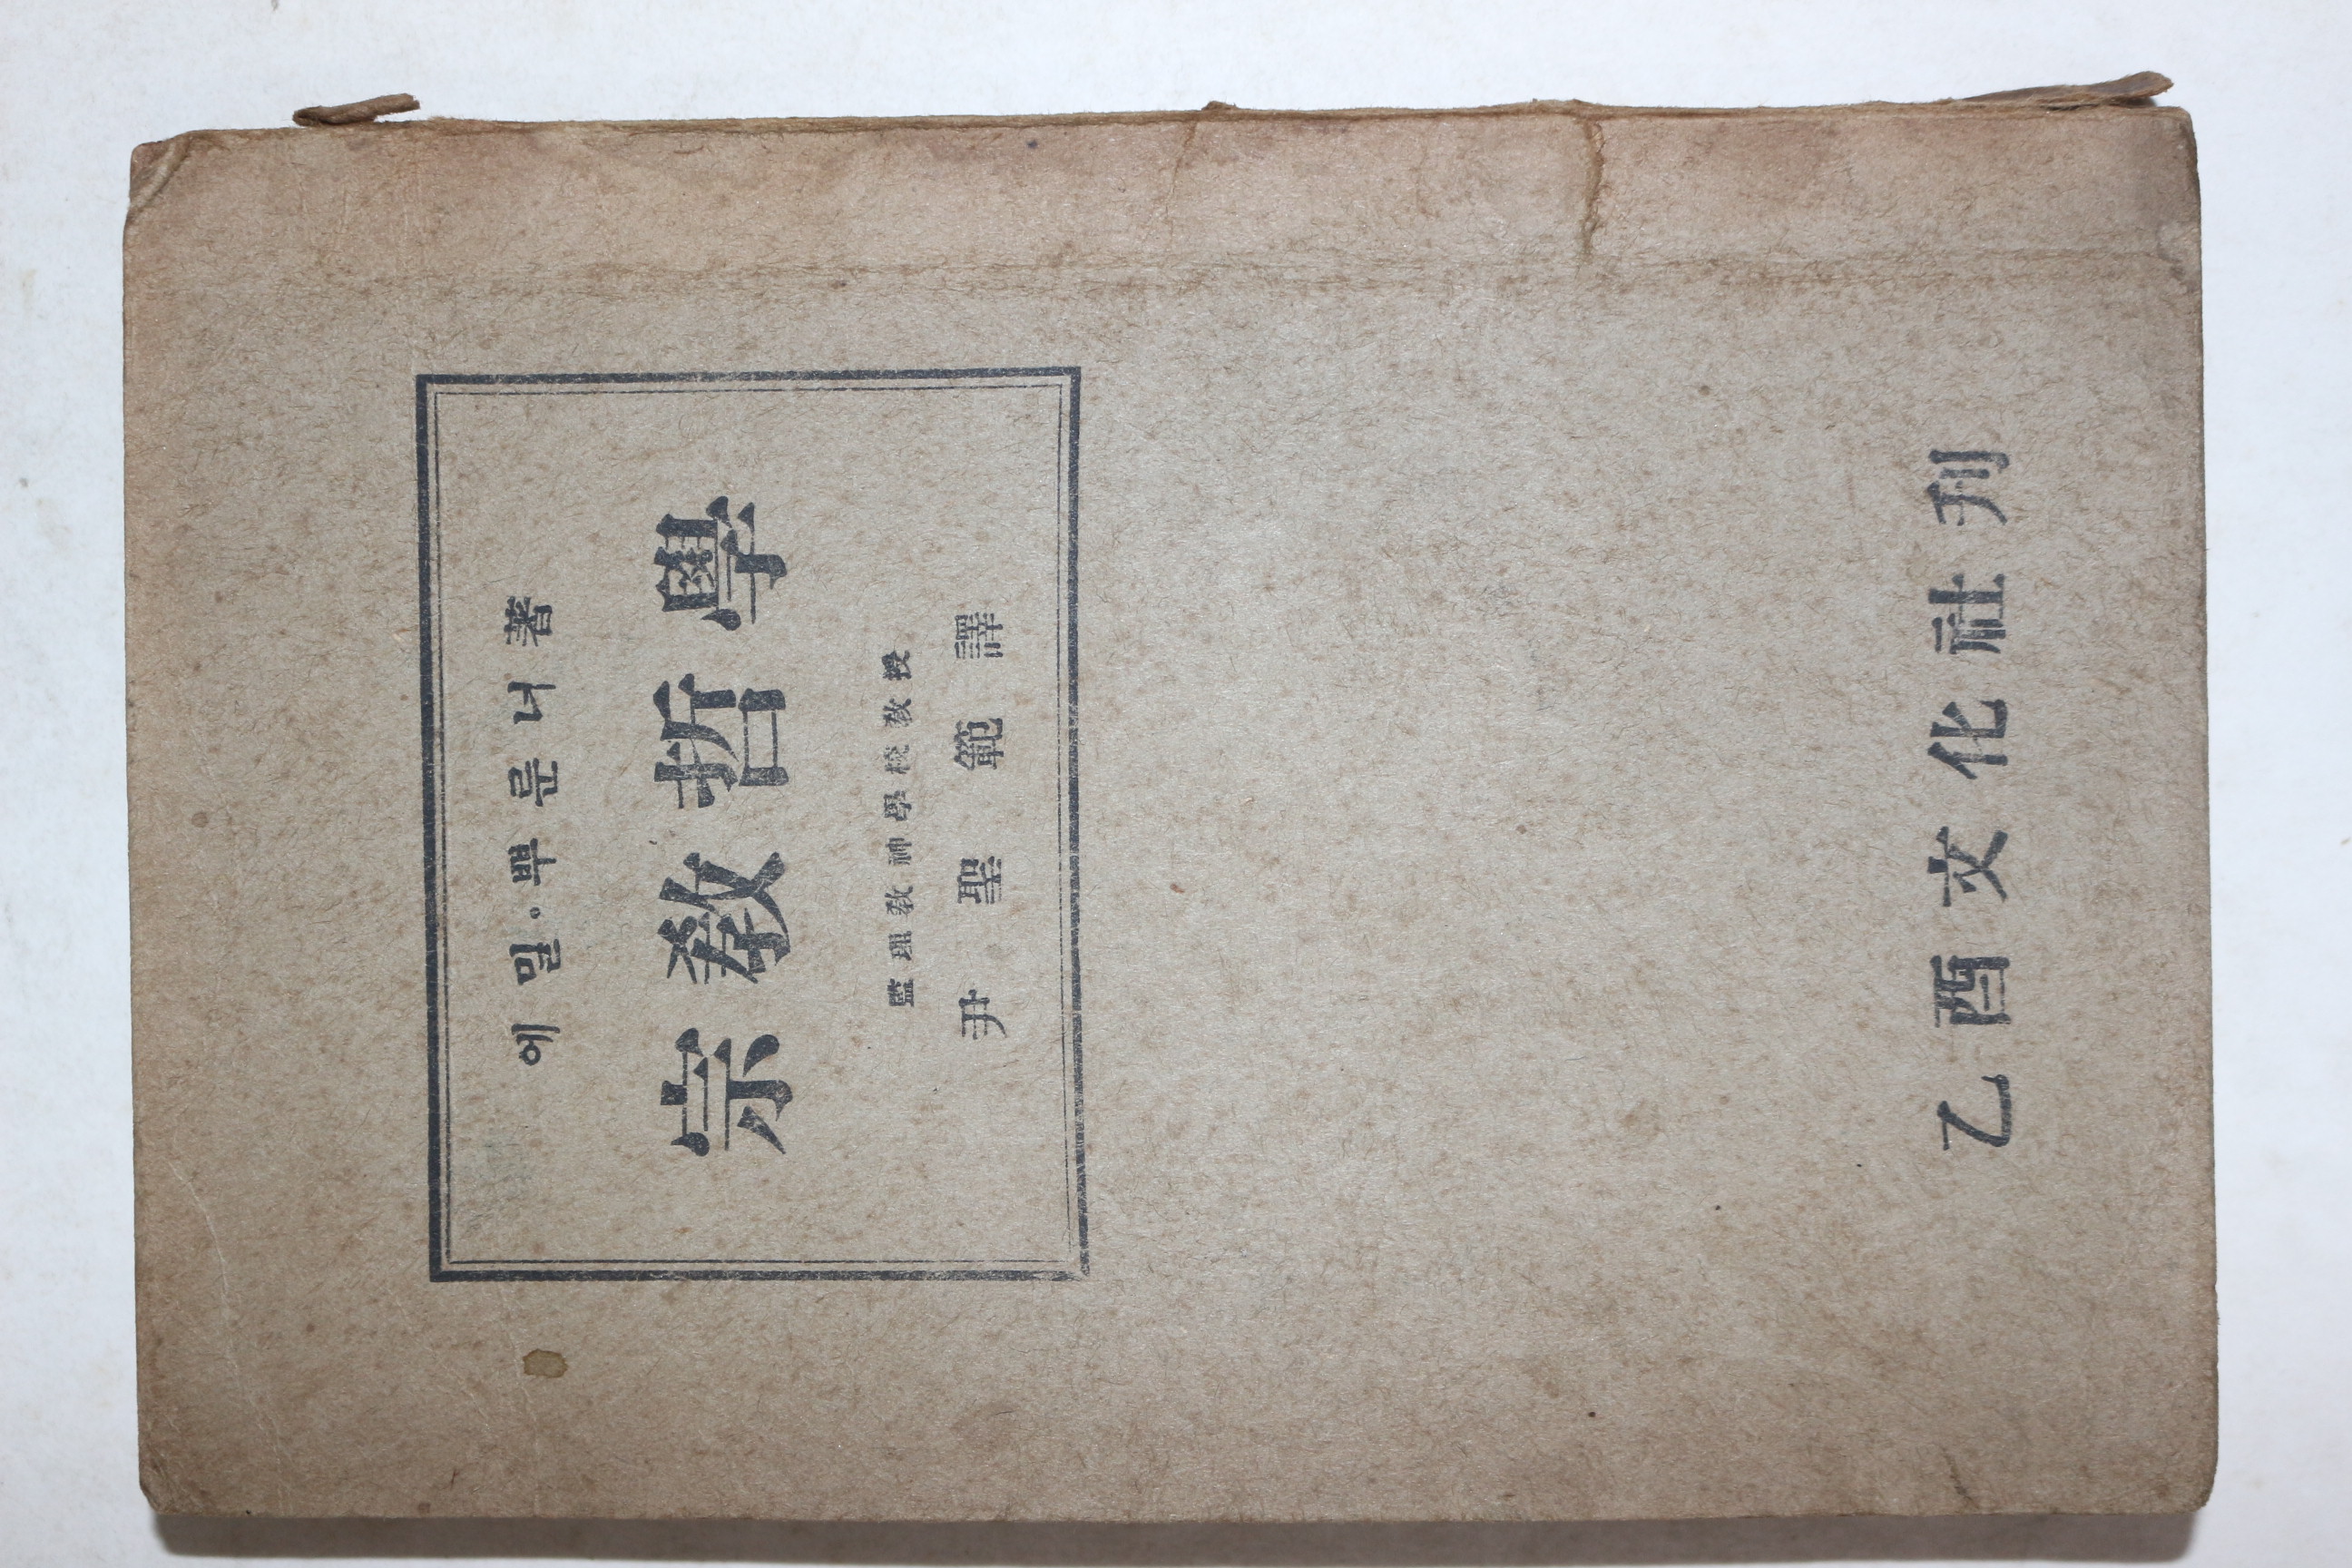 에밀·뿌룬너 著
宗敎哲學
監理敎神學校敎授
尹聖範 譯
乙酉文化社刊